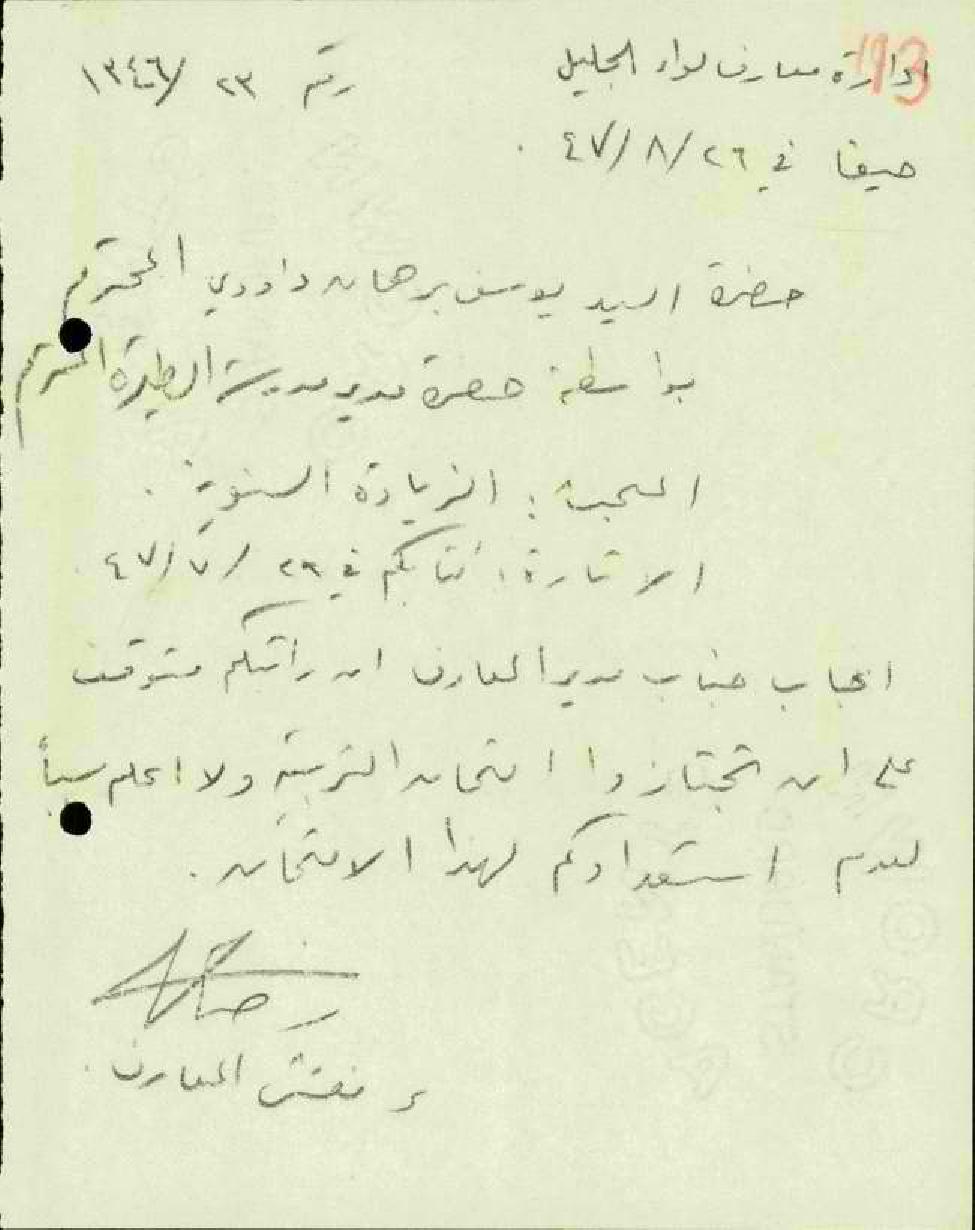 193
ادارة معارف لواء الجليل رقم ٢٣/١٣٤٦
حيفا في ٢٦/٨/٤٧.
حضرة السيد يوسف برهان داودي المحترم
بواسطة حضرة مدير مدرسة الطيرة المحترم
المبحث: الزيادة السنوية.
الاشارة: كتابكم في ٢٩/٧/٤٧.
اجاب جناب مدير المعارف ان راتبكم متوقف
على ان تجتازوا امتحان التربية ولا اعلم سبباً
لعدم استعدادكم لهذا الامتحان.
مفتش المعارف.